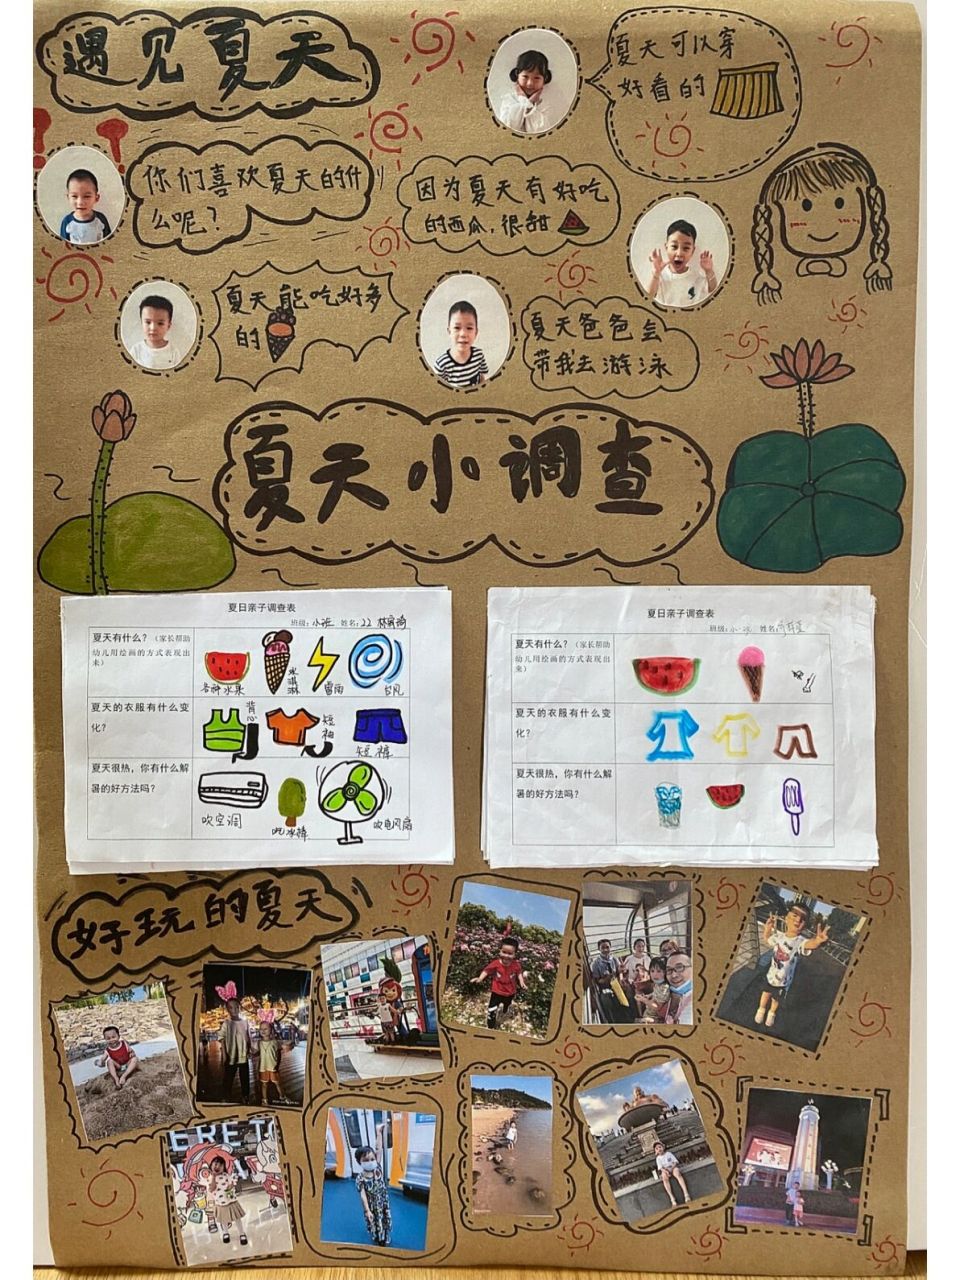 遇见夏天
夏天可以穿
好看的
你们喜欢夏天的什
么呢？
因为夏天有好吃
的西瓜，很甜
夏天能吃好多
的
夏天爸爸会
带我去游泳
夏天小调查
夏日亲子调查表
班级：小班 姓名：22
夏天有什么？（家长帮助
幼儿用绘画的方式表现出
来）
各种水果
冰淇淋
雷雨
台风
夏天的衣服有什么变
化？
背心
短袖
短裤
夏天很热，你有什么解
暑的好方法吗？
吹空调
吃冰棒
吹电风扇
夏日亲子调查表
班级：小班 姓名：
夏天有什么？（家长帮助
幼儿用绘画的方式表现出
来）
夏天的衣服有什么变
化？
夏天很热，你有什么解
暑的好方法吗？
好玩的夏天